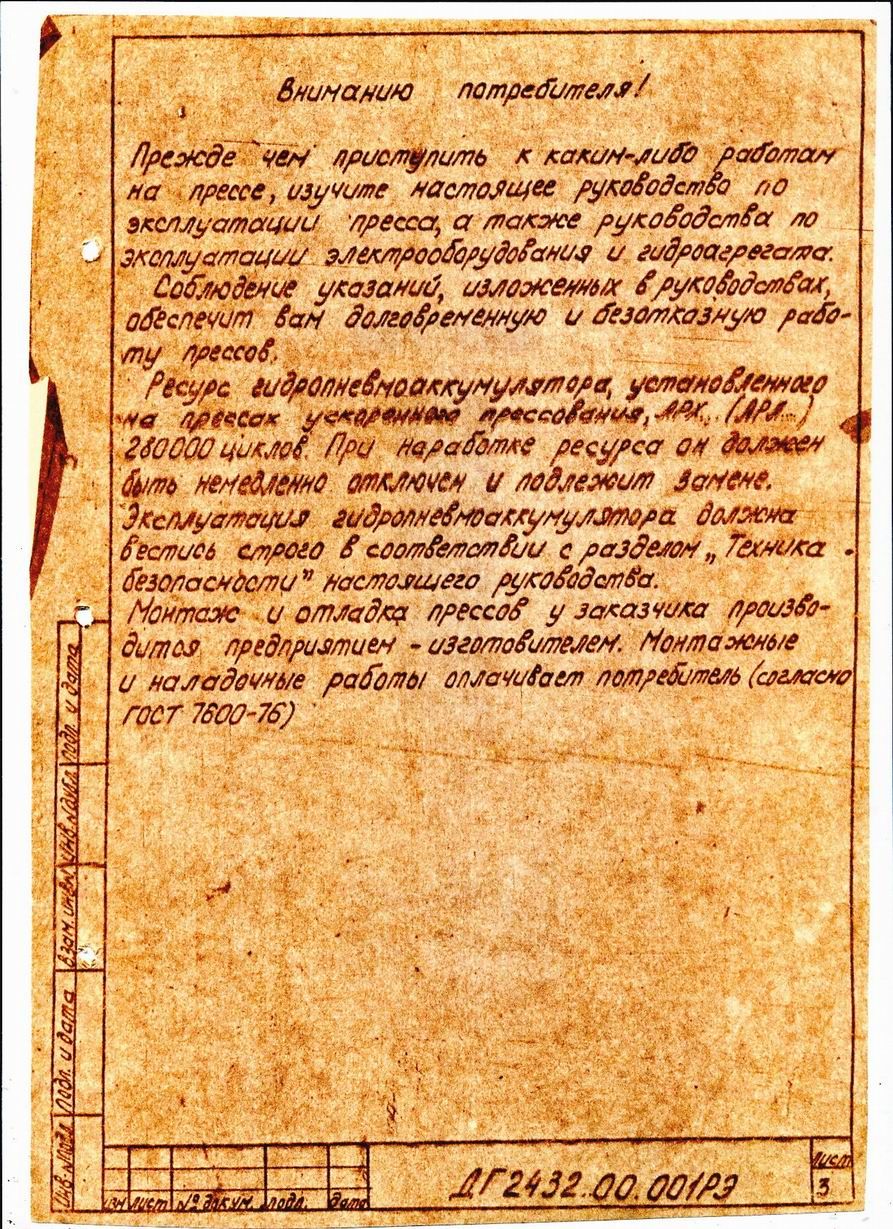 Вниманию потребителя!
Прежде чем приступить к каким-либо работам
на прессе, изучите настоящее руководство по
эксплуатации пресса, а также руководства по
эксплуатации электрооборудования и гидроагрегата.
Соблюдение указаний, изложенных в руководствах,
обеспечит вам долговременную и безотказную рабо-
ту прессов.
Ресурс гидропневмоаккумулятора, установленного
на прессах ускоренного прессования,
280000 циклов. При наработке ресурса он должен
быть немедленно отключен и подлежит замене.
Эксплуатация гидропневмоаккумулятора должна
вестись строго в соответствии с разделом „Техника
безопасности" настоящего руководства.
Монтаж и отладка прессов у заказчика произво-
дится предприятием - изготовителем. Монтажные
и наладочные работы оплачивает потребитель (согласно
ГОСТ 7600-76)
Подп. и дата
Инв. № дубл.
Взам. инв. №
Подп. и дата
Инв. № подл.
Изм Лист № докум. Подп. Дата
ДГ2432.00.001РЭ
Лист
3